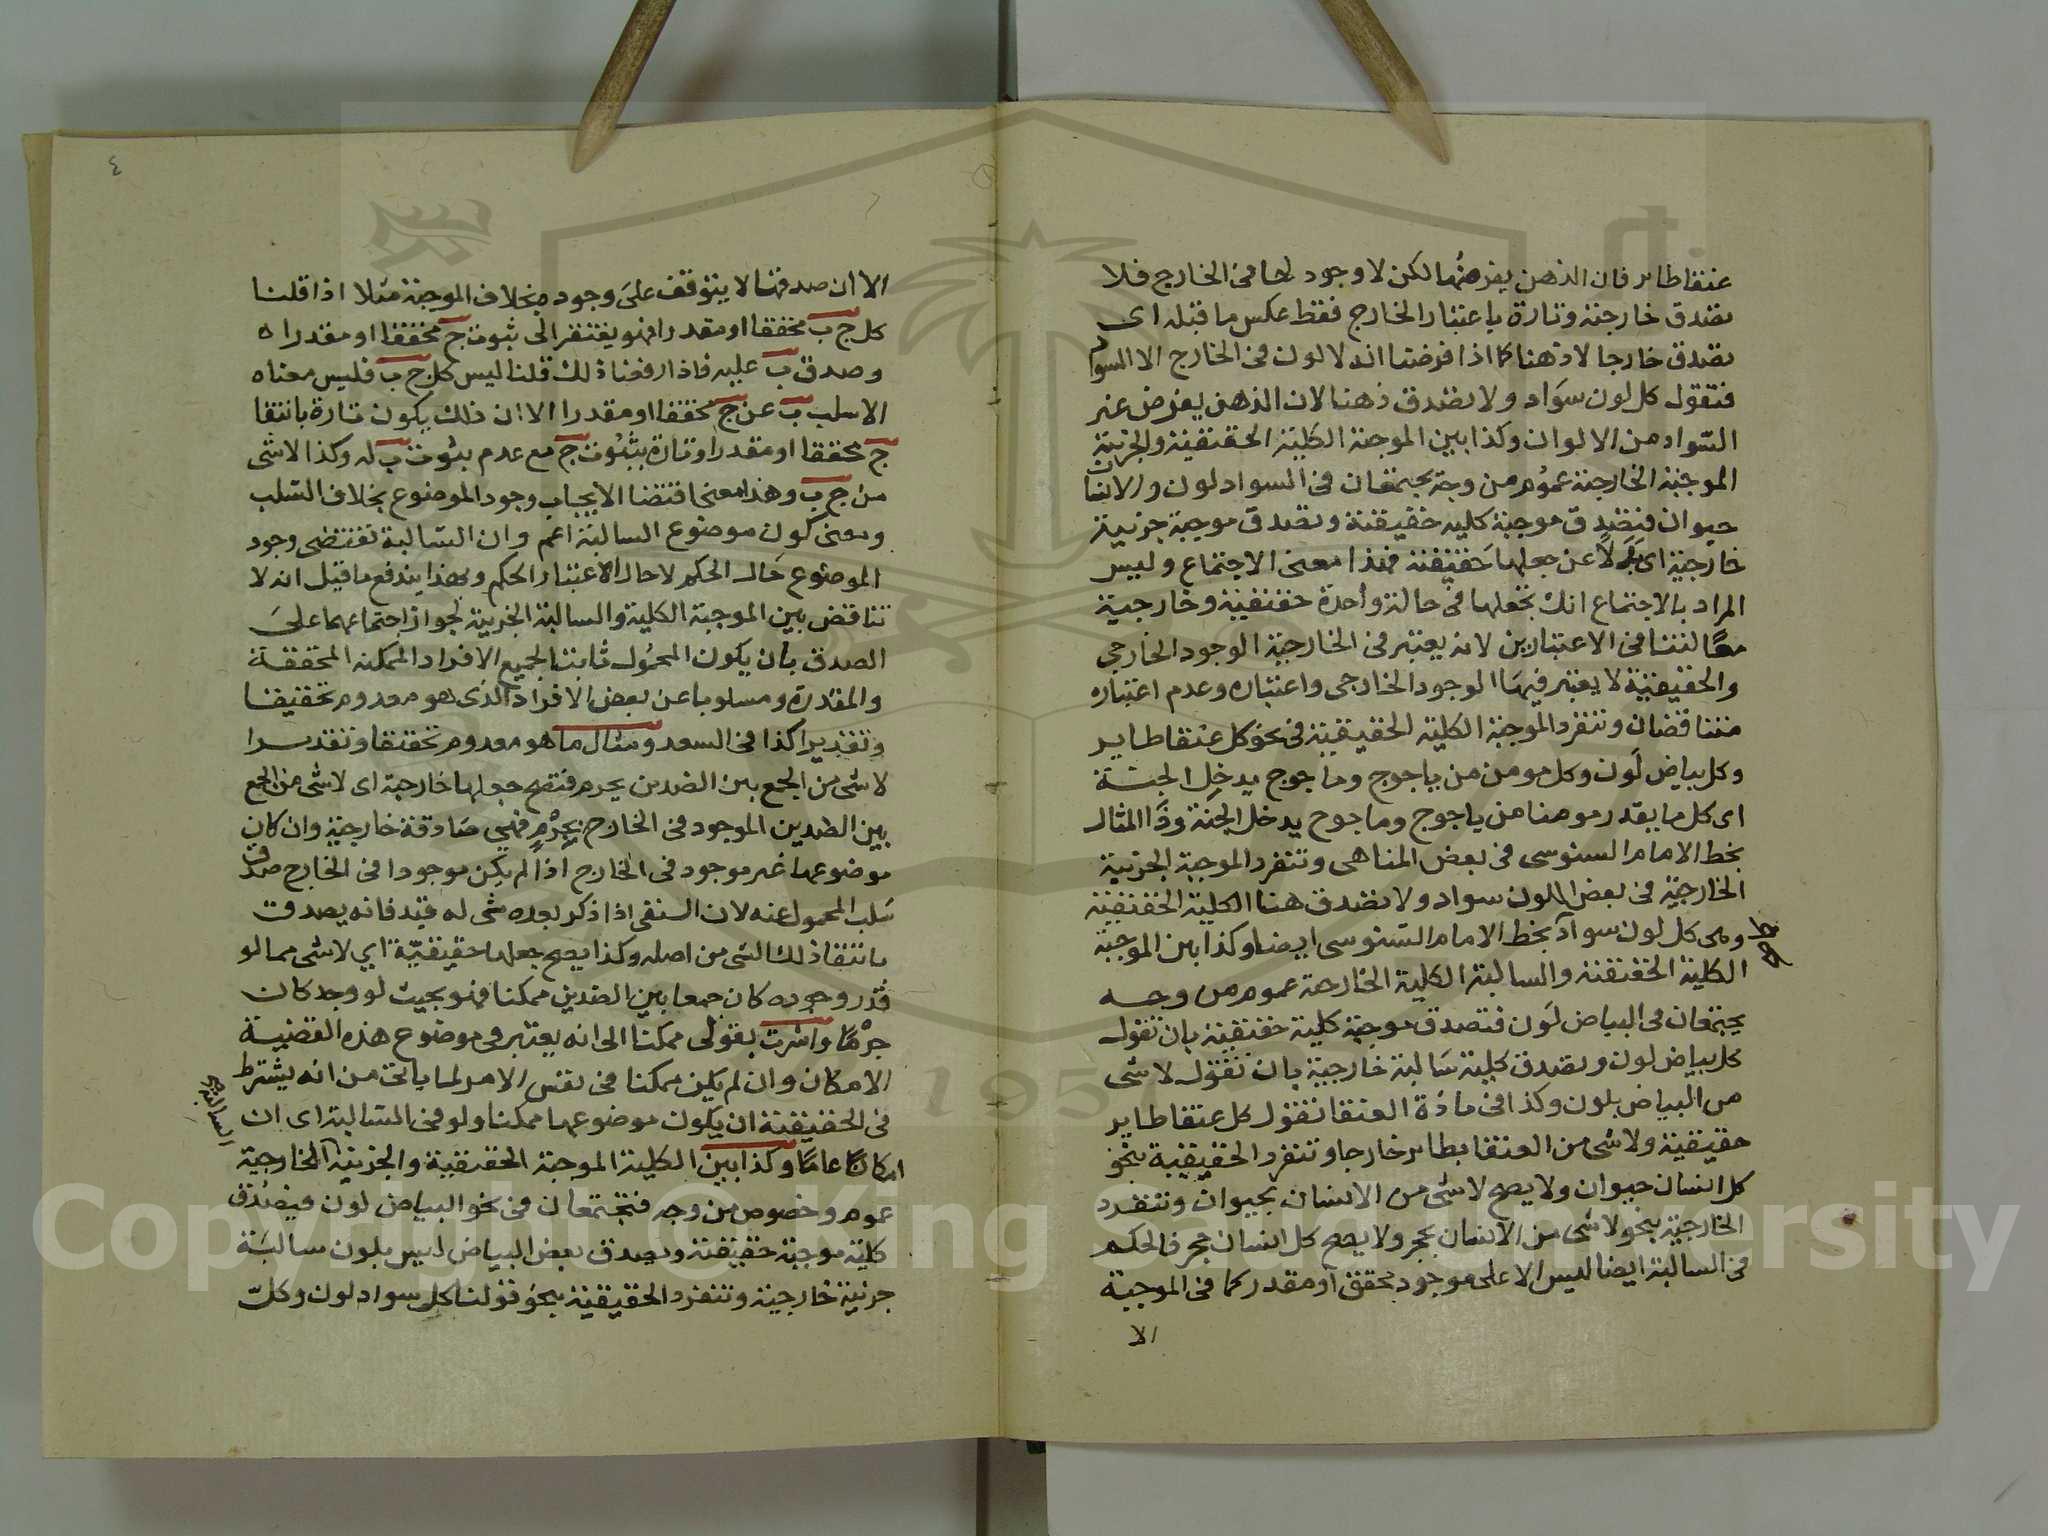 عنقا طاير فان الذهن يفرضها لكن لا وجود لها في الخارج فلا
تصدق خارجية وتارة باعتبار الخارج فقط عكس ما قبله اي
تصدق خارجا لا ذهنا كما اذا فرضنا انه لا لون في الخارج الا السواد
فتقول كل لون سواد ولا تصدق ذهنا لان الذهن يفرض غير
السواد من الالوان وكذا بين الموجبة الكلية الحقيقية والجزيية
الموجبة الخارجية عموم من وجه يجتمعان في السواد لون والانسان
حيوان فتصدق موجبة كلية حقيقية وتصدق موجبة جزيية
خارجية اي بدلا عن جعلها حقيقية فهذا معنى الاجتماع وليس
المراد بالاجتماع انك تجعلها في حالة واحدة حقيقية وخارجية
معا لتنافي الاعتبارين لانه يعتبر في الخارجية الوجود الخارجي
والحقيقية لا يعتبر فيها الوجود الخارجي واعتباره وعدم اعتباره
متناقضان وتنفرد الموجبة الكلية الحقيقية في نحو كل عنقا طاير
وكل بياض لون وكل مومن من ياجوج وماجوج يدخل الجنة
اي كل ما يقدر مومنا من ياجوج وماجوج يدخل الجنة وذا المثال
بخط الامام السنوسي في بعض المناهي وتنفرد الموجبة الجزيية
الخارجية في بعض اللون سواد ولا تصدق هنا الكلية الحقيقية
وهي كل لون سواد بخط الامام السنوسي ايضا وكذا بين الموجبة
الكلية الحقيقية والسالبة الكلية الخارجة عموم من وجه
يجتمعان في البياض لون فتصدق موجبة كلية حقيقية بان تقول
كل بياض لون وتصدق كلية سالبة خارجية بان تقول لا شي
من البياض بلون وكذا في مادة العنقا تقول كل عنقا طاير
حقيقية ولا شي من العنقا بطاير خارجا وتنفرد الحقيقية بنحو
كل انسان حيوان ولا يصح لا شي من الانسان بحيوان وتنفرد
الخارجية بنحو لا شي من الانسان بحجر ولا يصح كل انسان حجر فالحكم
في السالبة ايضا ليس الا على موجود محقق او مقدر كما في الموجبة
الا
٤
الا ان صدقها لا يتوقف على وجوده بخلاف الموجبة مثلا اذا قلنا
كل ج ب محققا او مقدرا فهو يفتقر الى ثبوت ج محققا او مقدرا
وصدق ب عليه فاذا رفعنا ذلك قلنا ليس كل ج ب فليس معناه
الا سلب ب عن ج محققا او مقدرا الا ان ذلك يكون تارة بانتفا
ج محققا او مقدرا وتارة بثبوت ج مع عدم ثبوت ب له وكذا لا شي
من ج ب وهذا معنى اقتضا الايجاب وجود الموضوع بخلاف السلب
ومعنى كون موضوع السالبة اعم وان السالبة تقتضي وجود
الموضوع حال الحكم لا حال الاعتبار الحكم وبهذا يندفع ما قيل انه لا
تناقض بين الموجبة الكلية والسالبة الجزيية لجواز اجتماعهما على
الصدق بان يكون المحمول ثابتا لجميع الافراد الممكنة المحققة
والمقدرة ومسلوبا عن بعض الافراد الذي هو معدوم تحقيقا
وتقديرا كذا في السعد ومثال ما هو معدوم تحقيقا وتقديرا
لا شي من الجمع بين الضدين بجرم فتصح جعلها خارجية اي لا شي من الجمع
بين الضدين الموجود في الخارج بجرم فهي صادقة خارجية وان كان
موضوعها غير موجود في الخارج اذا لم يكن موجودا في الخارج صدق
سلب المحمول عنه لان النفي اذا ذكر بعده شي له قيد فانه يصدق
بانتفا ذلك الشي من اصله وكذا يصح جعلها حقيقية اي لا شي مما لو
قدر وجوده كان جمعا بين الضدين ممكنا فهو بحيث لو وجد كان
جرما واشرت بقولي ممكنا الى انه يعتبر في موضوع هذه القضية
الامكان وان لم يكن ممكنا في نفس الامر لما ياتي من انه يشترط
في الحقيقية ان يكون موضوعها ممكنا ولو في السالبة اي ان
امكانا عاما وكذا بين الكلية الموجبة الحقيقية والجزيية الخارجية
السالبة
عموم وخصوص من وجه فتجتمعان في نحو البياض لون فيصدق
كلية موجبة حقيقية وتصدق بعض البياض ليس بلون سالبة
جزيية خارجية وتنفرد الحقيقية بنحو قولنا كل سواد لون وكل
Copyright © King Saud University
1957